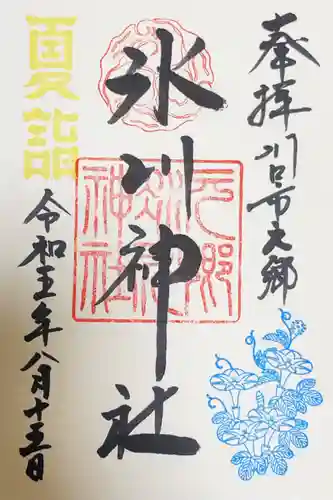 奉拝 川口市元郷
氷川神社
元郷氷川神社
夏詣
令和五年八月十三日